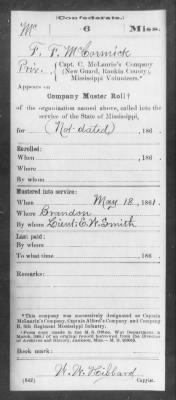 (Confederate.)
Mc 6 Miss.
F. F. McCormick
Priv., Capt. C. McLaurin's Company
(New Guard, Rankin County),
Mississippi Volunteers.*
Appears on
Company Muster Roll†
of the organization named above, called into the
service of the State of Mississippi,
for (Not dated), 186 .
Enrolled:
When , 186 .
Where
By whom
Mustered into service:
When May 18, 1861.
Where Brandon
By whom Lieut. E. W. Smith
Last paid:
By whom
To what time , 186 .
Remarks:
*This company was successively designated as Captain
McLaurin's Company, Captain Alford's Company and Company
6th Regiment Mississippi Infantry.
†From copy made in the M. S. Office, War Department, in
March, of an original record borrowed from the Director
of Archives and History, Jackson, Miss.
Book mark:
(642) W. W. Hibbard
Copyist.